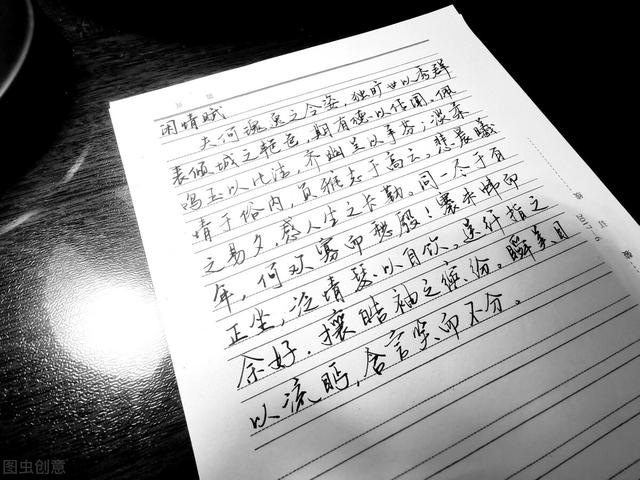 闲情赋
夫何瑰逸之令姿，独旷世以秀群
表倾城之艳色，期有德以传闻。佩
鸣玉以比洁，齐幽兰以争芬；淡柔
情于俗内，负雅志于高云。悲晨曦
之易夕，感人生之长勤。同一尽于百
年，何欢寡而愁殷！褰朱帏而
正坐，泛清瑟以自欣。送纤指之
余好，攘皓袖之缤纷。瞬美目
以流眄，含言笑而不分。
图虫创意